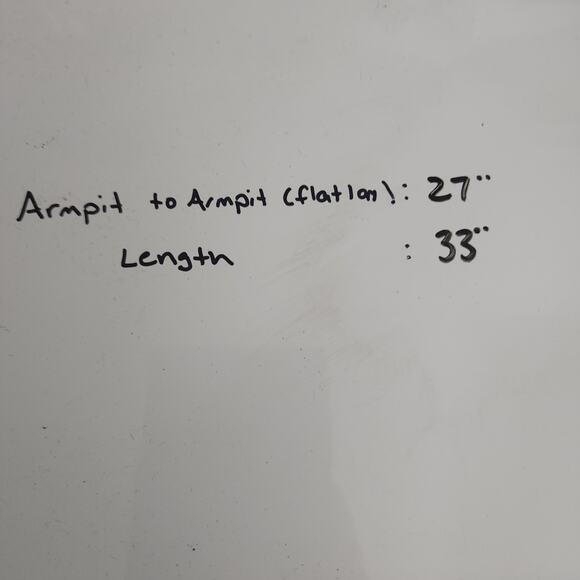 Armpit to Armpit (flatlay): 27"
Length : 33"